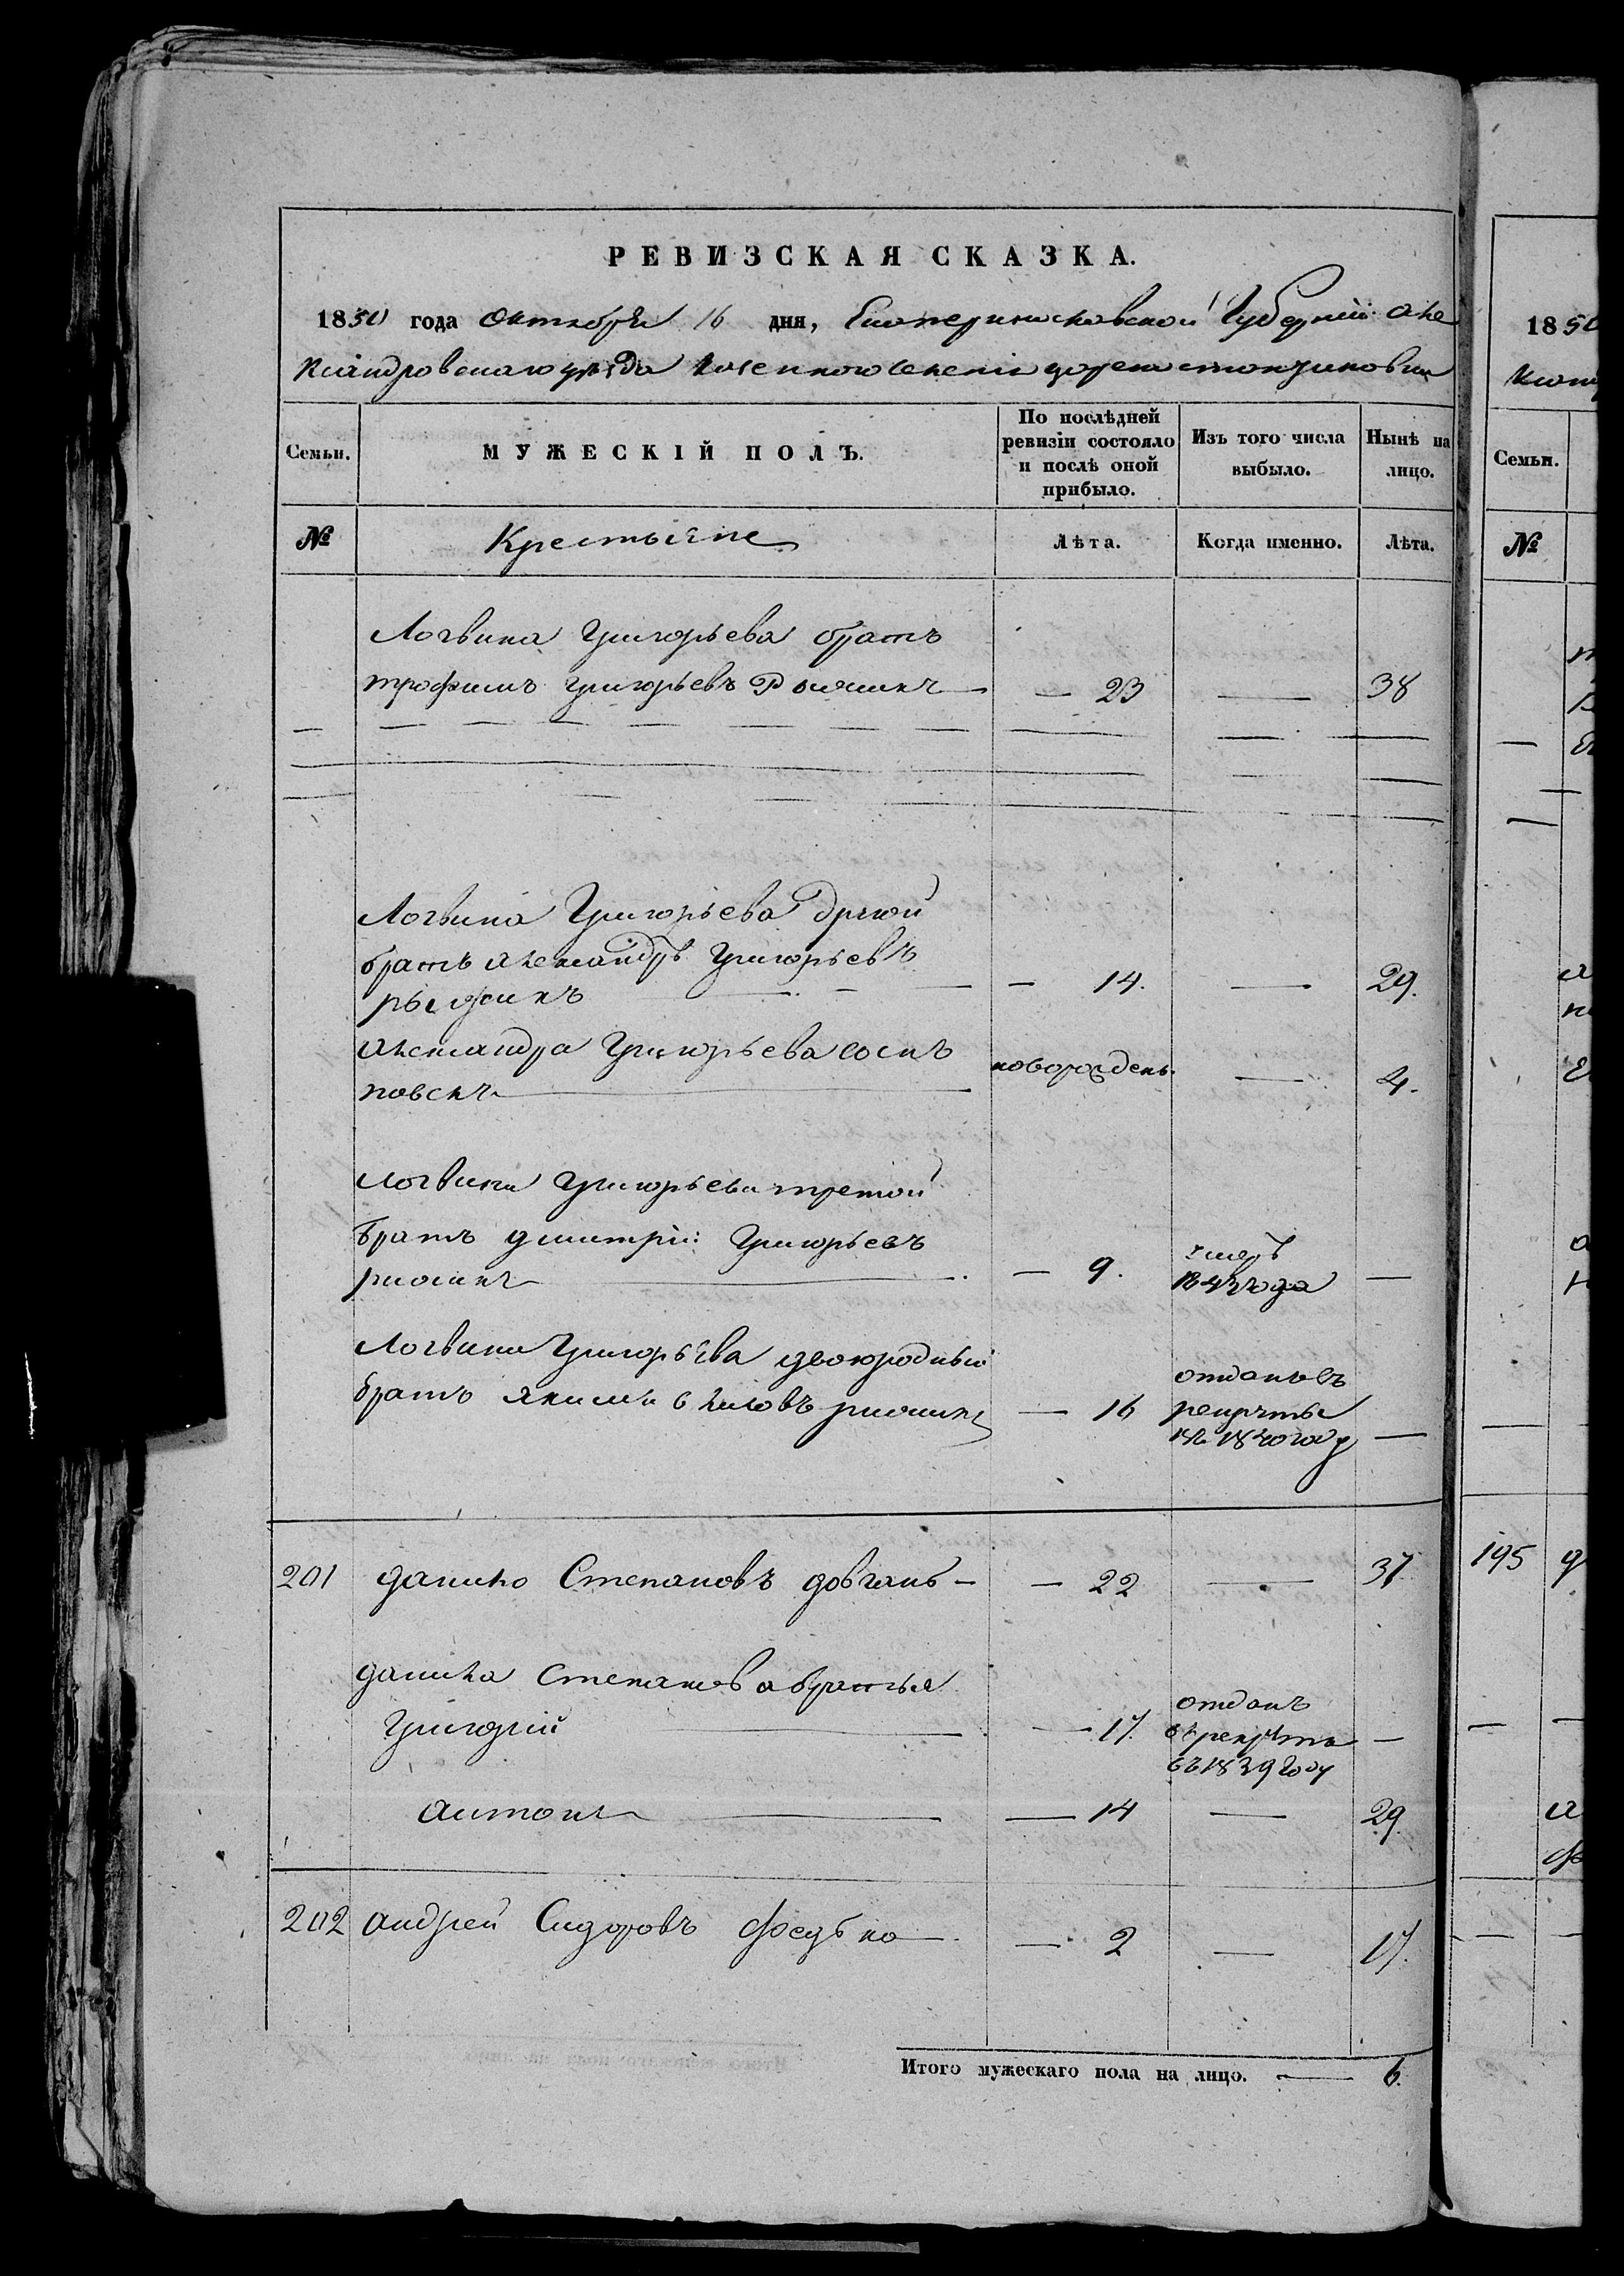 РЕВИЗСКАЯ СКАЗКА.
1850 года Октября 16 дня, Екатеринославской Губерніи Але
ксандровскаго уезда казенного селенія царе константиновки
Семьи.
МУЖЕСКІЙ ПОЛЪ.
По послѣдней ревизіи состояло и послѣ оной прибыло.
Изъ того числа выбыло.
Нынѣ на лицо.
№
Крестьяне
Лѣта.
Когда именно.
Лѣта.
Логвина Григорьева братъ
трофимъ григорьевъ — 23 — 38
Логвина Григорьева другой
братъ александръ Григорьевъ — 14. — 29.
александра Григорьева сынъ новорожденъ
— 4.
Логвина Григорьева третой
братъ дмитрій Григорьевъ умеръ
— 9. 1843 года —
Логвина Григорьева двоюродный отданъ въ
братъ — 16 рекруты
1840 году —
201 данило Степановъ довгань — 22 — 37
данила Степанова братья
Григорій — 17. отданъ в рекруты въ 1839 году —
антонъ — 14 — 29.
202 андрей Сидоровъ федько — 2 — 17.
Итого мужескаго пола на лицо. — 6.
1850
Семьи.
№
195